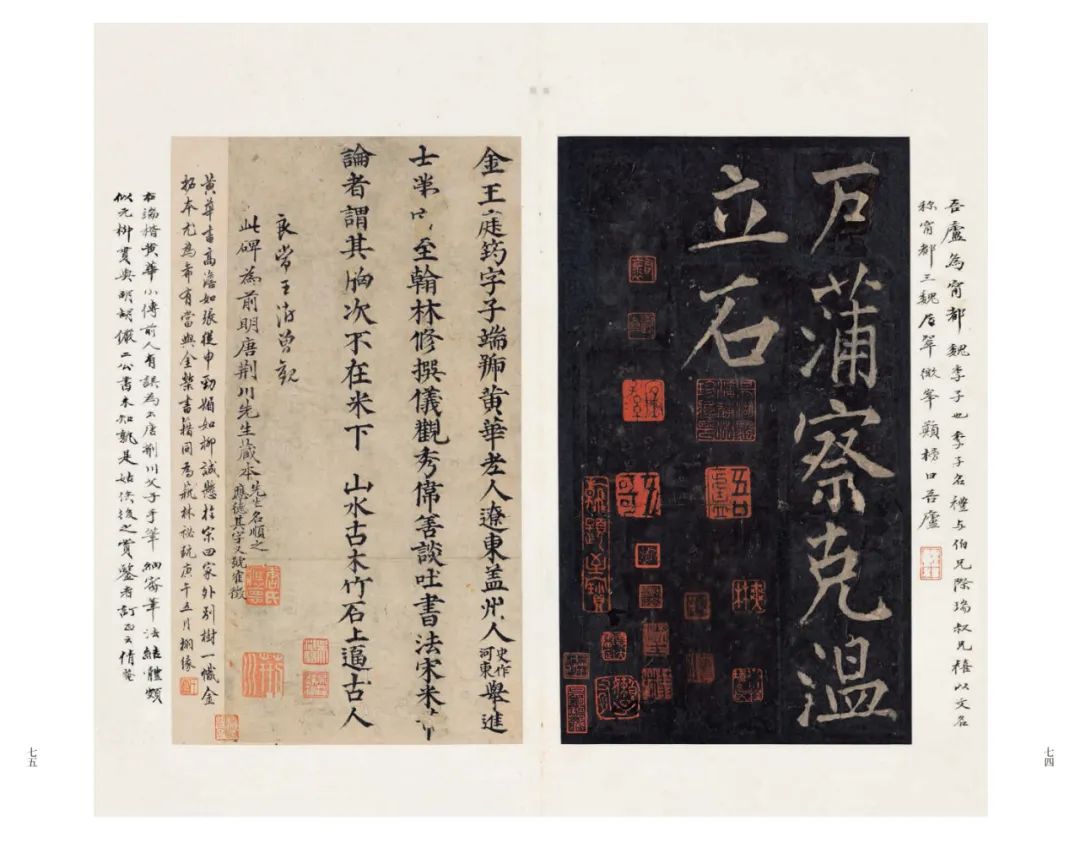 吾廬為甯都魏季子也季子名禮与伯兄際瑞叔兄禧以文名
称甯都三魏居翠微峯顛榜曰吾廬
戶蒲察克温
立石
吾廬
七四
金王庭筠字子端號黃華老人遼東盖州人史作河東舉進
士第至翰林修撰儀觀秀偉善談吐書法宋米
論者謂其胸次不在米下 山水古木竹石上逼古人
良常王澍曾觀
此碑為前明唐荆川先生藏本先生名順之應德其字又號
黄華書高澹如張從申勁媚如柳誠懸於宋四家外别樹一幟金
拓本尤為希有當與金槧書籍同為藝林祕玩庚午五月栩緣
右端楷黄華小傳前人有誤為出唐荆川父子手筆細審筆法結體頗
似元柳貫與明胡儼二公書未知孰是姑俟後之賞鑒者訂正云倩菴
七五